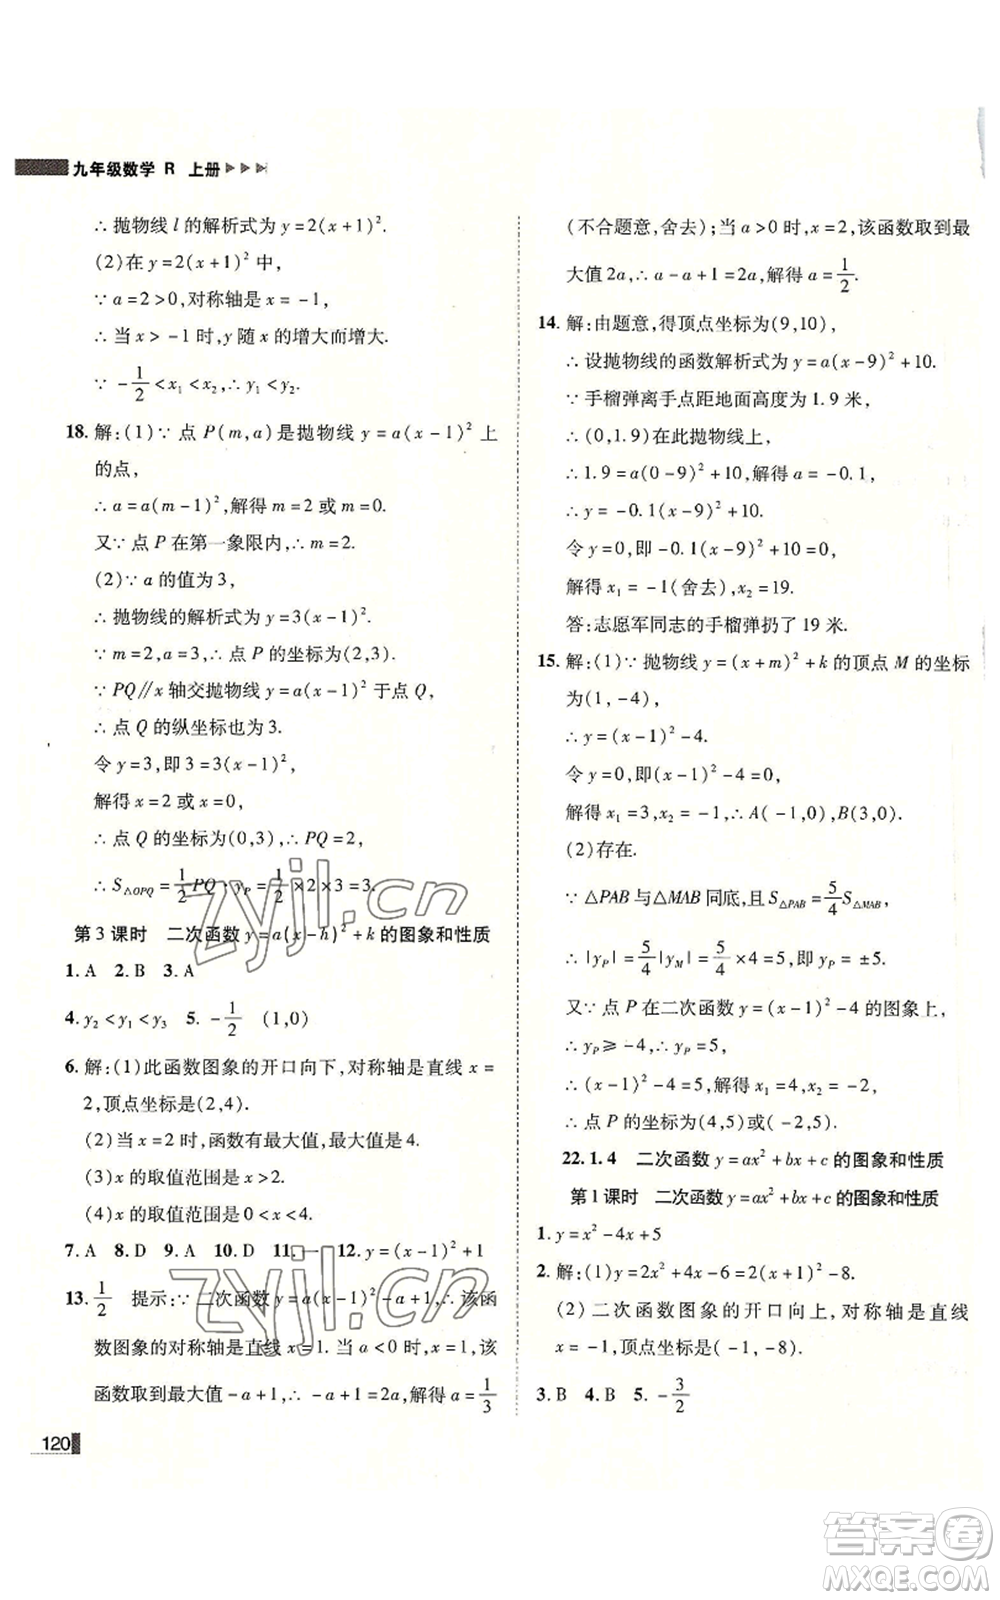 九年级数学 R 上册
∴抛物线 l 的解析式为 y=2(x+1)².
(2)在 y=2(x+1)² 中,
∵a=2>0,对称轴是 x=-1,
∴当 x>-1 时,y 随 x 的增大而增大.
∵-1/2<x₁<x₂,∴y₁<y₂.
18. 解:(1)∵点 P(m,a)是抛物线 y=a(x-1)² 上
的点,
∴a=a(m-1)²,解得 m=2 或 m=0.
又∵点 P 在第一象限内,∴m=2.
(2)∵a 的值为 3,
∴抛物线的解析式为 y=3(x-1)².
∵m=2,a=3,∴点 P 的坐标为(2,3).
∵PQ∥x 轴交抛物线 y=a(x-1)² 于点 Q,
∴点 Q 的纵坐标也为 3.
令 y=3,即 3=3(x-1)²,
解得 x=2 或 x=0,
∴点 Q 的坐标为(0,3),∴PQ=2,
∴S△OPQ=1/2PQ·yP=1/2×2×3=3.
第 3 课时 二次函数 y=a(x-h)²+k 的图象和性质
1. A 2. B 3. A
4. y₂<y₁<y₃ 5. -1/2 (1,0)
6. 解:(1)此函数图象的开口向下,对称轴是直线 x=
2,顶点坐标是(2,4).
(2)当 x=2 时,函数有最大值,最大值是 4.
(3)x 的取值范围是 x>2.
(4)x 的取值范围是 0<x<4.
7. A 8. D 9. A 10. D 11. 一 12. y=(x-1)²+1
13. 1/2 提示:∵二次函数 y=a(x-1)²-a+1,∴该函
数图象的对称轴是直线 x=1. 当 a<0 时,x=1,该
函数取到最大值-a+1,∴-a+1=2a,解得 a=1/3
120
(不合题意,舍去);当 a>0 时,x=2,该函数取到最
大值 2a,∴a-a+1=2a,解得 a=1/2.
14. 解:由题意,得顶点坐标为(9,10),
∴设抛物线的函数解析式为 y=a(x-9)²+10.
∵手榴弹离手点距地面高度为 1.9 米,
∴(0,1.9)在此抛物线上,
∴1.9=a(0-9)²+10,解得 a=-0.1,
∴y=-0.1(x-9)²+10.
令 y=0,即-0.1(x-9)²+10=0,
解得 x₁=-1(舍去),x₂=19.
答:志愿军同志的手榴弹扔了 19 米.
15. 解:(1)∵抛物线 y=(x+m)²+k 的顶点 M 的坐标
为(1,-4),
∴y=(x-1)²-4.
令 y=0,即(x-1)²-4=0,
解得 x₁=3,x₂=-1,∴A(-1,0),B(3,0).
(2)存在.
∵△PAB 与△MAB 同底,且 S△PAB=5/4S△MAB,
∴|yP|=5/4|yM|=5/4×4=5,即 yP=±5.
又∵点 P 在二次函数 y=(x-1)²-4 的图象上,
∴yP≥-4,∴yP=5,
∴(x-1)²-4=5,解得 x₁=4,x₂=-2,
∴点 P 的坐标为(4,5)或(-2,5).
22.1.4 二次函数 y=ax²+bx+c 的图象和性质
第 1 课时 二次函数 y=ax²+bx+c 的图象和性质
1. y=x²-4x+5
2. 解:(1)y=2x²+4x-6=2(x+1)²-8.
(2)二次函数图象的开口向上,对称轴是直线
x=-1,顶点坐标是(-1,-8).
3. B 4. B 5. -3/2
zyjl.cn
zyjl.cn
答案卷
MXQE.COM